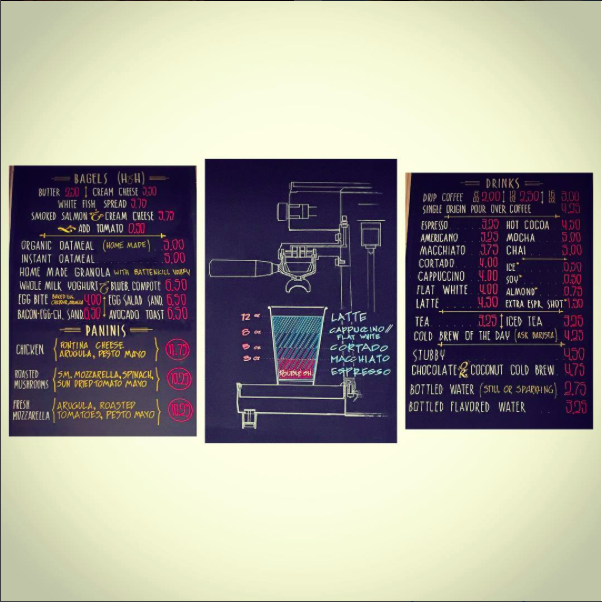 BAGELS (H&H)
BUTTER CREAM CHEESE
WHITE FISH SPREAD 3.70
SMOKED SALMON & CREAM CHEESE 3.70
ADD TOMATO 0.50
ORGANIC OATMEAL (HOME MADE) 5.00
INSTANT OATMEAL 5.00
HOME MADE GRANOLA WITH
WHOLE MILK YOGHURT & BLUEB. COMPOTE 6.50
EGG BITE 4.00 EGG SALAD SAND. 6.50
BACON-EGG-CH. SAND. AVOCADO TOAST 6.50
PANINIS
CHICKEN FONTINA CHEESE
ARUGULA, PESTO MAYO
ROASTED MUSHROOMS SM. MOZZARELLA, SPINACH,
SUN DRIED TOMATO MAYO 10.95
FRESH MOZZARELLA ARUGULA, ROASTED
TOMATOES, PESTO MAYO 10.95
12 oz LATTE
CAPPUCCINO//
FLAT WHITE
CORTADO
MACCHIATO
ESPRESSO
DOUBLE ON
DRINKS
DRIP COFFEE 2.00 2.50 3.00
SINGLE ORIGIN POUR OVER COFFEE
ESPRESSO HOT COCOA 4.50
AMERICANO MOCHA 5.00
MACCHIATO 3.75 CHAI 5.00
CORTADO 4.00 ICE*
CAPPUCCINO 4.00 SOY*
FLAT WHITE 4.00 ALMOND* 0.75
LATTE 4.50 EXTRA ESPR. SHOT*
TEA ICED TEA
COLD BREW OF THE DAY (ASK BARISTA)
STUBBY 4.50
CHOCOLATE & COCONUT COLD BREW 4.75
BOTTLED WATER (STILL OR SPARKLING) 2.75
BOTTLED FLAVORED WATER